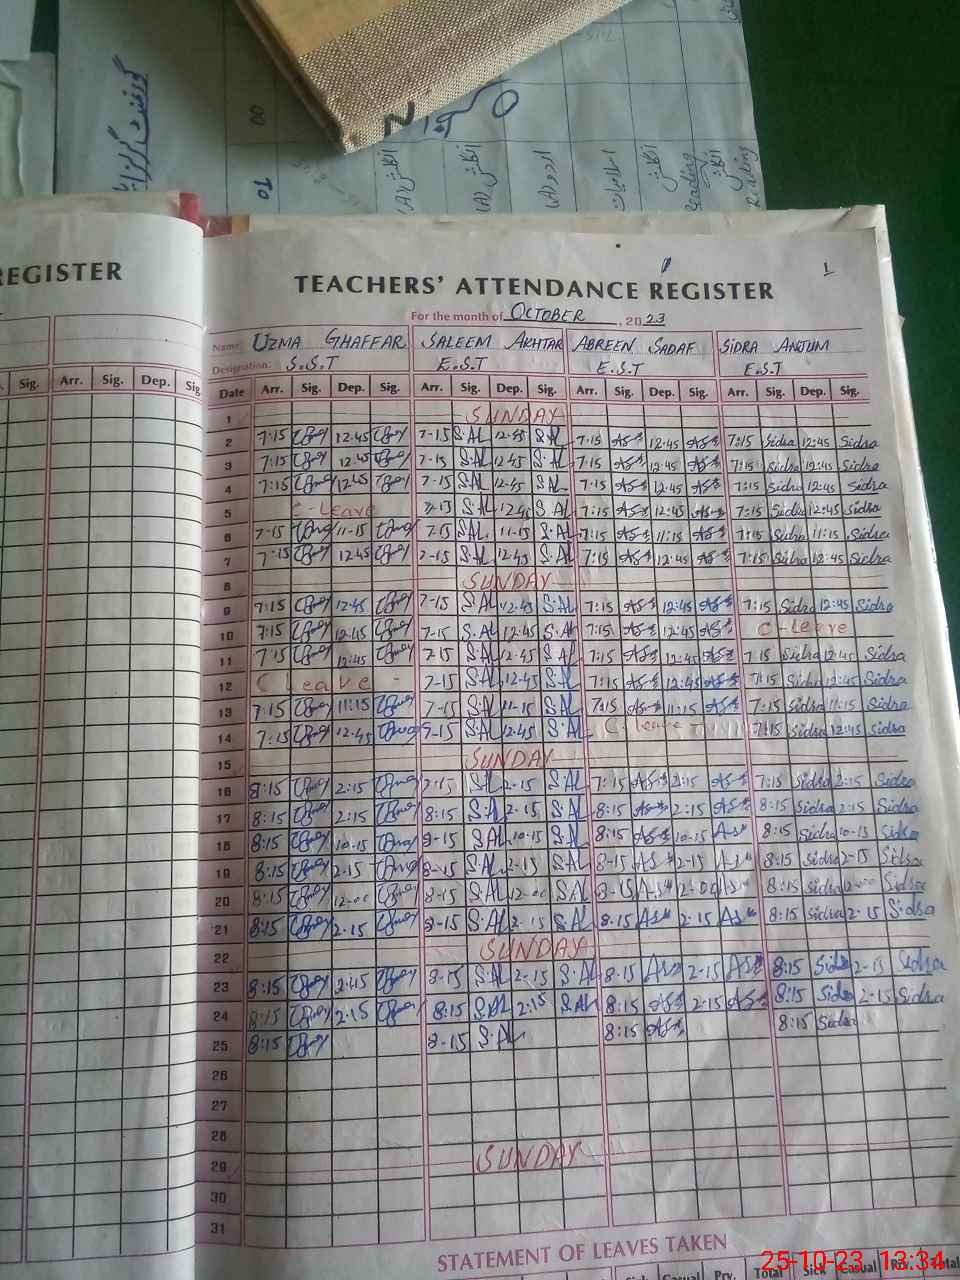 00
To
انگلش (A)
انگلش (A)
اردو (A)
اسلامیات
انگلش
Reading
انگلش
Reading
REGISTER
1
TEACHERS' ATTENDANCE REGISTER
For the month of OCTOBER, 2023
Name UZMA GHAFFAR SALEEM AKHTAR ABREEN SADAF SIDRA ANJUM
Designation. S.S.T E.S.T E.S.T E.S.T
Sig. Arr. Sig. Dep. Sig
Date Arr. Sig. Dep. Sig. Arr. Sig. Dep. Sig. Arr. Sig. Dep. Sig. Arr. Sig. Dep. Sig.
1 SUNDAY
2 7:15 12:45 7-15 S.AL 12-45 S.AL 7:15 12:45 7:15 Sidra 12:45 Sidra
3 7:15 12:45 7-15 S.AL 12-45 S.AL 7:15 12:45 7:15 Sidra 12:45 Sidra
4 7:15 12:45 7-15 S.AL 12-45 S.AL 7:15 12:45 7:15 Sidra 12:45 Sidra
5 C-Leave 7-15 S.AL 12-45 S.AL 7:15 12:45 7:15 Sidra 12:45 Sidra
6 7-15 11-15 7-15 S.AL 11-15 S.AL 7:15 11:15 7:15 Sidra 11:15 Sidra
7 7:15 12:45 7-15 S.AL 12-45 S.AL 7:15 12:45 7:15 Sidra 12:45 Sidra
8 SUNDAY
9 7:15 12:45 7-15 S.AL 12-45 S.AL 7:15 12:45 7:15 Sidra 12:45 Sidra
10 7:15 12:45 7-15 S.AL 12-45 S.AL 7:15 12:45 C-leave
11 7:15 12:45 7-15 S.AL 12-45 S.AL 7:15 12:45 7:15 Sidra 12:45 Sidra
12 C Leave - 7-15 S.AL 12-45 S.AL 7:15 12:45 7:15 Sidra 12:45 Sidra
13 7:15 11:15 7-15 S.AL 11-15 S.AL 7:15 11:15 7-15 Sidra 11:15 Sidra
14 7:15 12:45 7-15 S.AL 12-45 S.AL C-leave 7:15 Sidra 12:45 Sidra
15 SUNDAY
16 8:15 2:15 S.AL 2-15 S.AL 7:15 2:15 7:15 Sidra 2:15 Sidra
17 8:15 2:15 8:15 S.AL 2-15 S.AL 8:15 2:15 8:15 Sidra 2:15 Sidra
18 8:15 10-15 8-15 S.AL 10-15 S.AL 8:15 10-15 8:15 Sidra 10-15 Sidra
19 8:15 2-15 8-15 S.AL 2-15 S.AL 8-15 2-15 8:15 Sidra 2-15 Sidra
20 8:15 12-00 8-15 S.AL 12-00 S.AL 8-15 8:15 Sidra 12-00 Sidra
21 8:15 2-15 8-15 S.AL 2-15 S.AL 8:15 2-15 8:15 Sidra 2-15 Sidra
22 SUNDAY
23 8:15 2:15 8-15 S.AL 2-15 S.AL 8-15 2-15 8:15 Sidra 2-15 Sidra
24 8:15 2-15 8:15 S.AL 2:15 S.AL 8:15 2-15 8:15 Sidra 2-15 Sidra
25 8:15 8-15 S.AL 8:15 8:15 Sidra
26
27
28
29 SUNDAY
30
31
STATEMENT OF LEAVES TAKEN
Casual Prv. Total Sick Casual Prv. Total
25-10-23 13:34